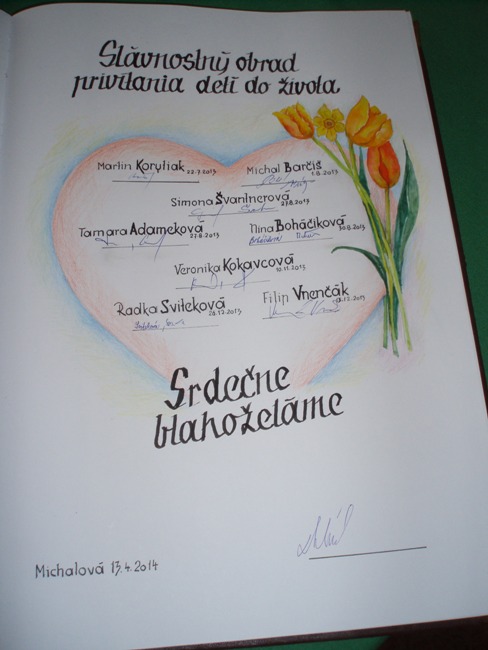 Slávnostný obrad
privítania detí do života
Martin Korytiak 22.7.2013 Michal Barčiš 1.8.2013
Simona Švantnerová 27.8.2013
Tamara Adameková 27.8.2013 Nina Boháčiková 30.8.2013
Veronika Kokavcová 10.11.2013
Radka Svíteková 28.12.2013 Filip Vnenčák
Srdečne
blahoželáme
Michalová 13.4.2014